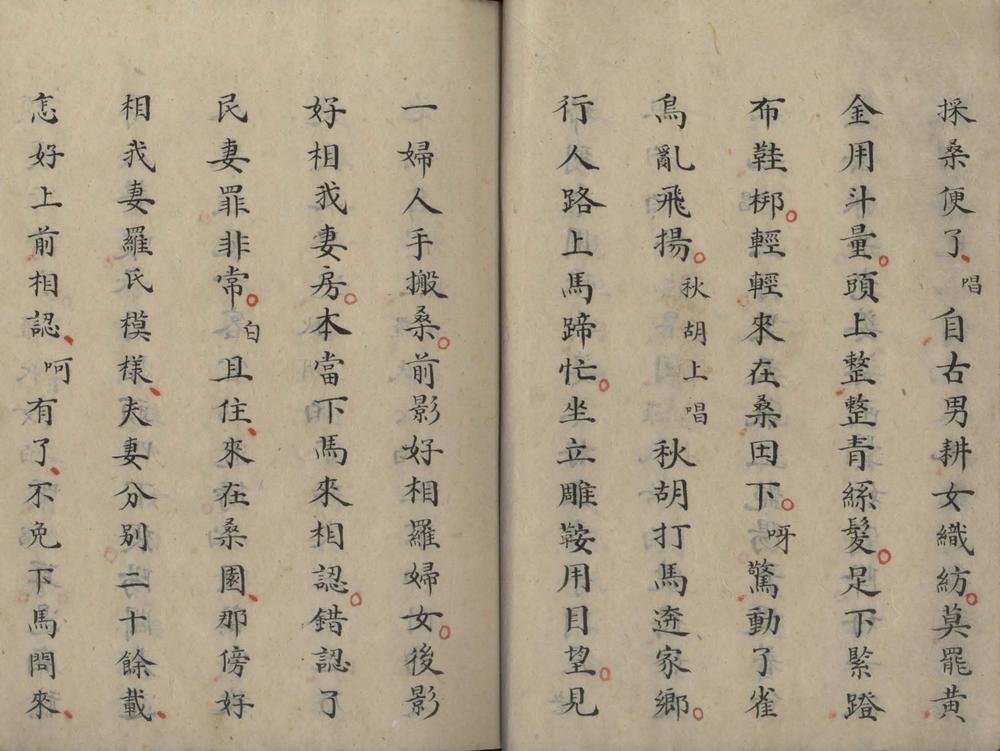 採桑便了、唱自古男耕女織紡。莫罷黃
金用斗量。頭上整整青絲髮。足下緊蹬
布鞋梆。輕輕來在桑田下。呀驚動了雀
鳥亂飛揚。秋胡上唱秋胡打馬遊家鄉。
行人路上馬蹄忙。坐立雕鞍用目望。見
一婦人手搬桑。前影好相羅婦女。後影
好相我妻房。本當下馬來相認。錯認了
民妻罪非常。白且住、來在桑園、那傍好
相我妻羅氏模樣、夫妻分别二十餘載、
怎好上前相認、呵有了、不免下馬問來、